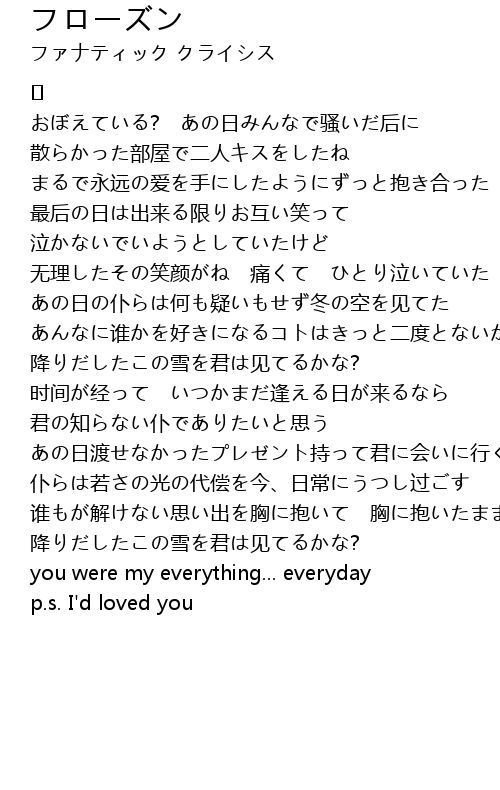 フローズン
ファナティック クライシス
おぼえている?　あの日みんなで骚いだ后に
散らかった部屋で二人キスをしたね
まるで永远の爱を手にしたようにずっと抱き合った
最后の日は出来る限りお互い笑って
泣かないでいようとしていたけど
无理したその笑颜がね　痛くて　ひとり泣いていた
あの日の仆らは何も疑いもせず冬の空を见てた
あんなに谁かを好きになるコトはきっと二度とないか
降りだしたこの雪を君は见てるかな?
时间が经って　いつかまだ逢える日が来るなら
君の知らない仆でありたいと思う
あの日渡せなかったプレゼント持って君に会いに行く
仆らは若さの光の代偿を今、日常にうつし过ごす
谁もが解けない思い出を胸に抱いて　胸に抱いたまま
降りだしたこの雪を君は见てるかな?
you were my everything... everyday
p.s. I'd loved you